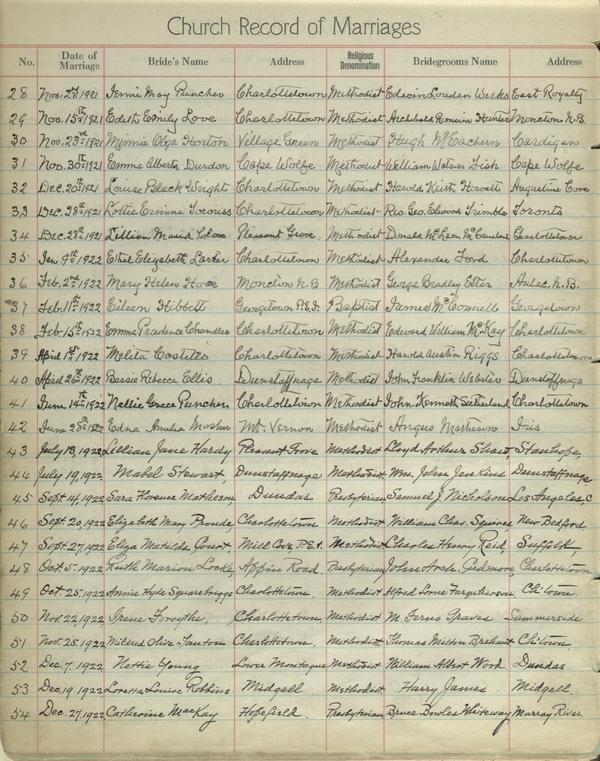 Church Record of Marriages
No. Date of Marriage Bride's Name Address Religious Denomination Bridegrooms Name Address
28 Nov. 2nd 1921 Jennie May Puncher Charlottetown Methodist Edwin Louden Weeks East Royalty
29 Nov. 15th 1921 Edith Emily Love Charlottetown Methodist Archibald Hunter Moncton N.B.
30 Nov. 23rd 1921 Minnie Olga Horton Village Green Methodist Hugh McEachern Cardigan
31 Nov. 30th 1921 Emma Alberta Cape Wolfe Methodist William Fish Cape Wolfe
32 Dec. 20th 1921 Louise Black Weights Charlottetown Methodist Harold Keith Howatt Augustine Cove
33 Dec. 28th 1921 Lottie Charlottetown Methodist Rev. Geo. Elwood Trimble Toronto
34 Dec. 28th 1921 Lillian Maud Pleasant Grove Methodist Donald McLean Charlottetown
35 Jan. 9th 1922 Ethel Elizabeth Charlottetown Methodist Alexander Ford Charlottetown
36 Feb. 2nd 1922 Mary Helen Moncton N.B. Methodist George Bradley Etter Aulac, N.B.
37 Feb. 11th 1922 Eileen Hibbett Georgetown P.E.I. Baptist James McConnell Georgetown
38 Feb. 15th 1922 Emma Prudence Chandler Charlottetown Methodist Edward William McKay Charlottetown
39 April 1st 1922 Melita Costilas Charlottetown Methodist Harold Austin Riggs Charlottetown
40 April 26th 1922 Bessie Rebecca Ellis Dunstaffnage Methodist John Franklin Webster Dunstaffnage
41 June 14th 1922 Nellie Grace Puncher Charlottetown Methodist John Kenneth Sutherland Charlottetown
42 June 23rd 1922 Edna Amelia Mosher Mt. Vernon Methodist Angus Matheson Iris
43 July 18, 1922 Lillian Jane Hardy Pleasant Grove Methodist Lloyd Arthur Shaw Stanhope,
44 July 19, 1922 Mabel Stewart, Dunstaffnage Methodist. Wm. John Jenkins Dunstaffnage
45 Sept. 14, 1922 Sara Florence Matheson, Dundas Presbyterian, Samuel J. Nicholson Los Angeles, C
46 Sept. 20, 1922 Elizabeth Mary Proude, Charlottetown Methodist William Chas. Squires New Bedford,
47 Sept. 27, 1922 Eliza Matilda Court, Mill Cove, P.E.I. Methodist Charles Henry Reid Suffolk
48 Oct. 5, 1922 Ruth Marion Locke, Appin Road Presbyterian John Arch. Gidmore, Charlottetown
49 Oct. 25, 1922 Annie Hyde Squarebriggs Charlottetown, Methodist Alfred Lorne Farquharson, Ch'town.
50 Nov. 22, 1922 Irene Forsythe, Charlottetown, Methodist M. Ferns Graves Summerside
51 Nov. 25, 1922 Mildred Olive Tanton Charlottetown. Methodist Thomas Milton Brehaut Ch'town
52 Dec. 7, 1922 Nettie Young Lower Montague Methodist William Albert Wood Dundas
53 Dec. 19, 1922 Loretta Louise Robbins Midgell Methodist Harry James Midgell.
54 Dec. 27, 1922 Catherine MacKay Hopefield, Presbyterian, Bruce Bowles Whiteway Murray River